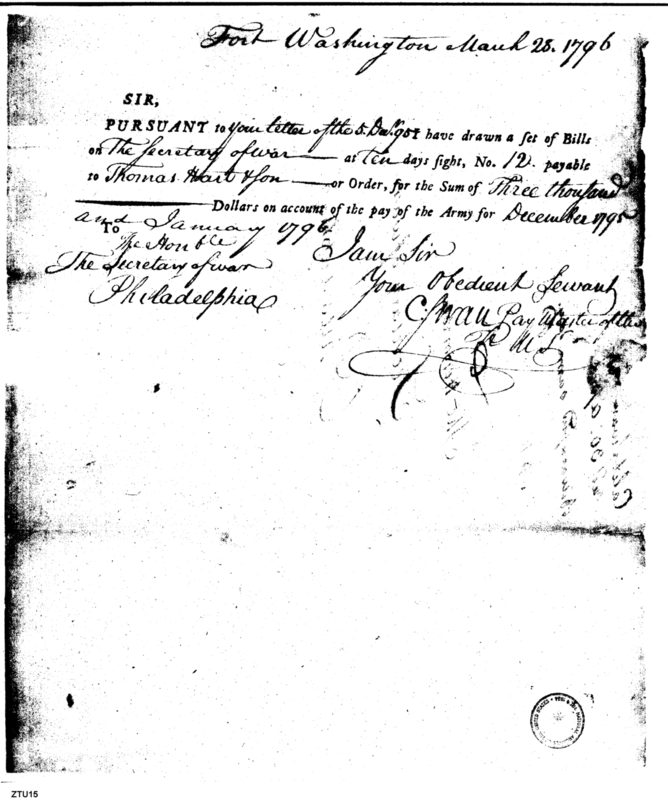 Fort Washington March 28. 1796
SIR,
PURSUANT to your letter of the 5. Decr. 95 I have drawn a set of Bills
on The Secretary of war at ten days sight, No. 12. payable
to Thomas Hart & Son or Order, for the Sum of Three thousand
Dollars on account of the pay of the Army for December 1795
and January 1796.
To
The Honble
The Secretary of war
Philadelphia
I am Sir
Your Obedient Servant
C Swan Pay Master of the
ZTU15